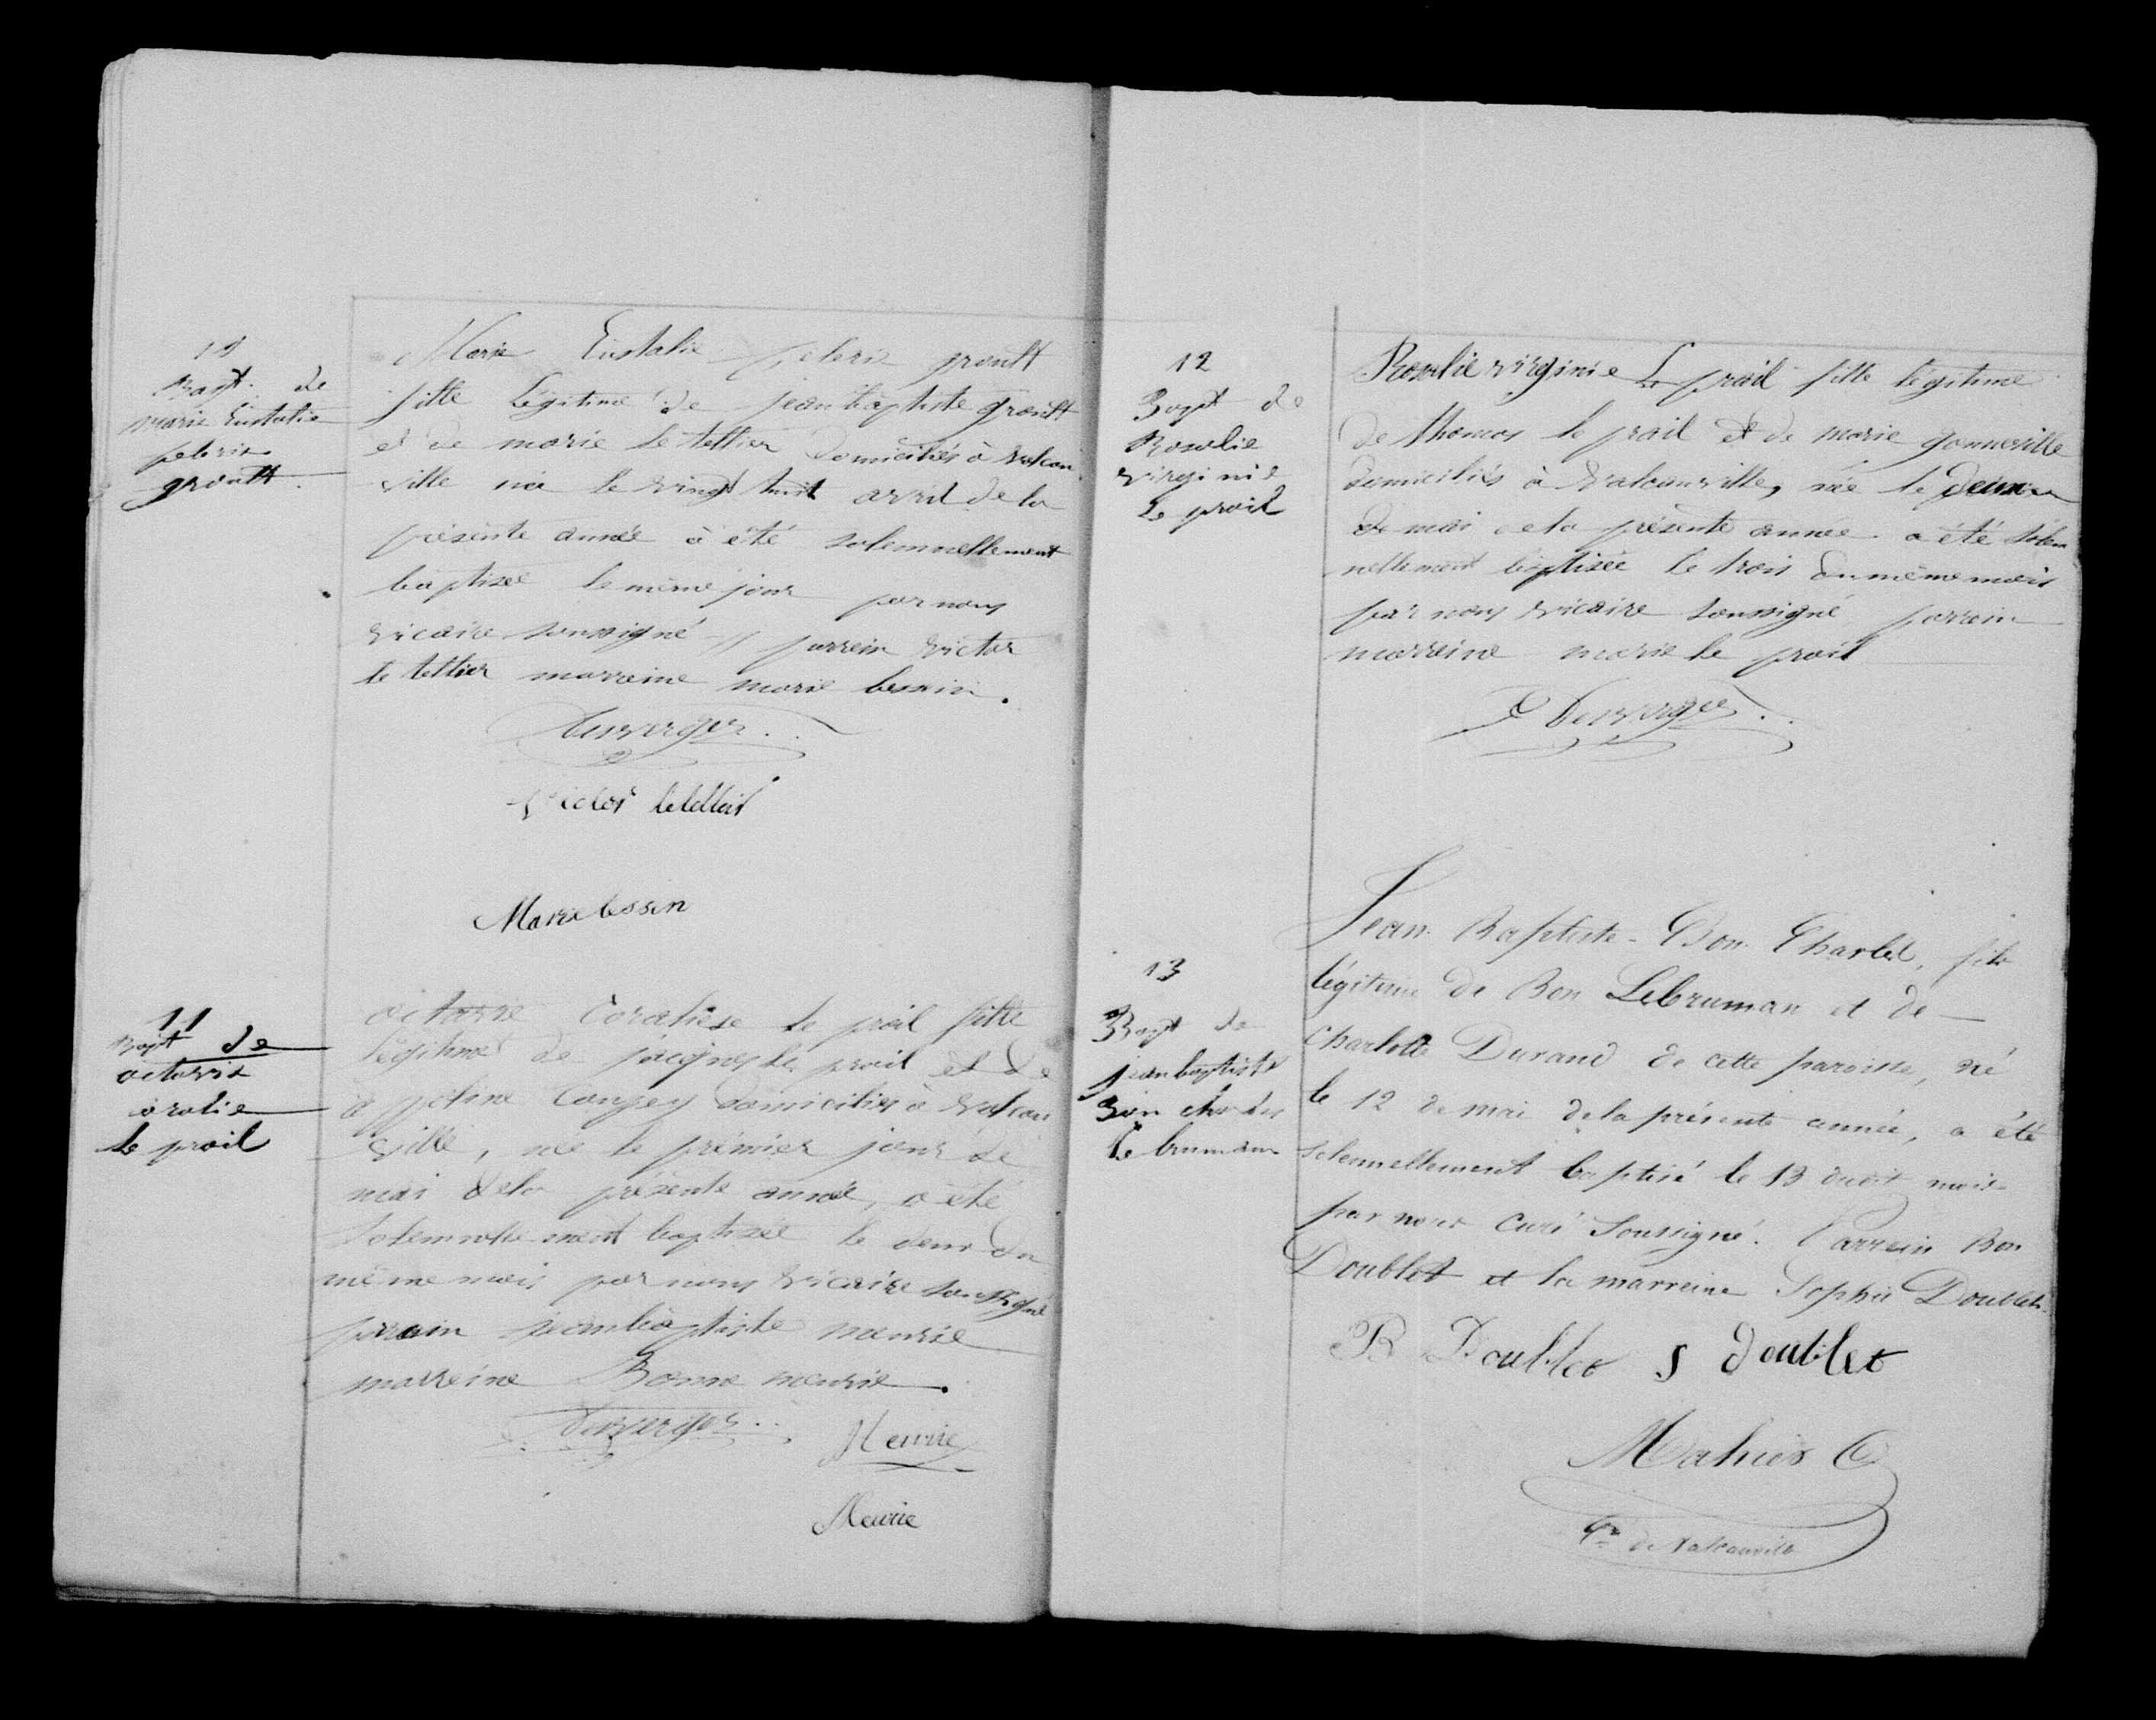 10
Bapt. de
marie Eustalie
groult.
Marie Eustalie groult
fille légitime de jean baptiste groult
et de marie le tellier domiciliés à valcan
ville née le vingt huit avril de la
présente année a été solemnellement
baptisée le même jour par nous
vicaire soussigné // parrein victor
le tellier marreine marie bessin.
Duverger
Victor letellier
Marie bessin
11
Bapt de
octavie
coralie
le prail
octavie le prail fille
légitime de jacques le prail et de
domiciliés à valcan
ville, née le prémier jour de
mai dela présente année, a été
solemnellement baptisée le deux du
même mois par nous vicaire soussigné
parrain jean baptiste meurie
marreine Bonne meurie.
Duverger
Meurie
Meurie
12
Bapt de
Rosalie
virginie
le prail
Rosalie virginie Le prail fille légitime
de thomas le prail et de marie gonneville
domiciliés à valcanville, née le deux
de mai de la présente année a été solem
nellement baptisée le trois du même mois
par nous vicaire soussigné parrein
marreine marie le prail
Duverger
13
Bapt de
jean baptiste
Bon charles
le bruman
Jean Baptiste Bon Charles, fils
légitime de Bon Lebruman et de
Charlotte Durand de cette paroisse, né
le 12 de mai dela présente année, a été
solennellement baptisé le 13 dudit mois
par nous Curé Soussigné. Parrain Bon
Doublet et la marreine Sophie Doublet.
B Doublet S doublet
Mahieu C
Cé de Valcanville